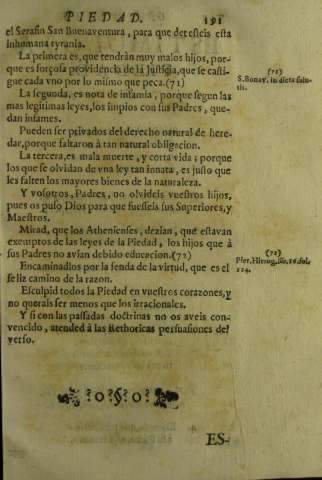 PIEDAD. 191
el Serafin San Buenaventura, para que detesteis esta
inhumana tyrania.
La primera es, que tendràn muy malos hijos, por-
que es forçosa providencia de la Justicia, que se casti-
gue cada vno por lo mismo que peca.(71)
(71)
S. Bonav. in dieta salu-
tis.
La segunda, es nota de infamia, porque segun las
mas legitimas leyes, los impios con sus Padres, que-
dan infames.
Pueden ser privados del derecho natural de here-
dar, porque faltaron à tan natural obligacion.
La tercera, es mala muerte, y corta vida; porque
los que se olvidan de vna ley tan innata, es justo que
les falten los mayores bienes de la naturaleza.
Y vosotros, Padres, no olvideis vuestros hijos,
pues os puso Dios para que fuesseis sus Superiores, y
Maestros.
Mirad, que los Athenienses, dezian, que estavan
exemptos de las leyes de la Piedad, los hijos que à
sus Padres no avian debido educacion.(72)
(72)
Pier. Hierog. lib. 16. fol.
124.
Encaminadlos por la senda de la virtud, que es el
feliz camino de la razon.
Esculpid todos la Piedad en vuestros corazones, y
no querais ser menos que los irracionales.
Y si con las passadas doctrinas no os aveis con-
vencido, atended à las Rethoricas persuasiones del
verso.
ES-